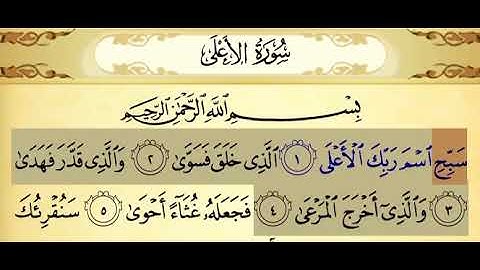 سُورَةُ الأَعْلَى
بِسْمِ اللَّهِ الرَّحْمَٰنِ الرَّحِيمِ
سَبِّحِ اسْمَ رَبِّكَ الْأَعْلَى ١ الَّذِي خَلَقَ فَسَوَّىٰ ٢ وَالَّذِي قَدَّرَ فَهَدَىٰ
٣ وَالَّذِي أَخْرَجَ الْمَرْعَىٰ ٤ فَجَعَلَهُ غُثَاءً أَحْوَىٰ ٥ سَنُقْرِئُكَ